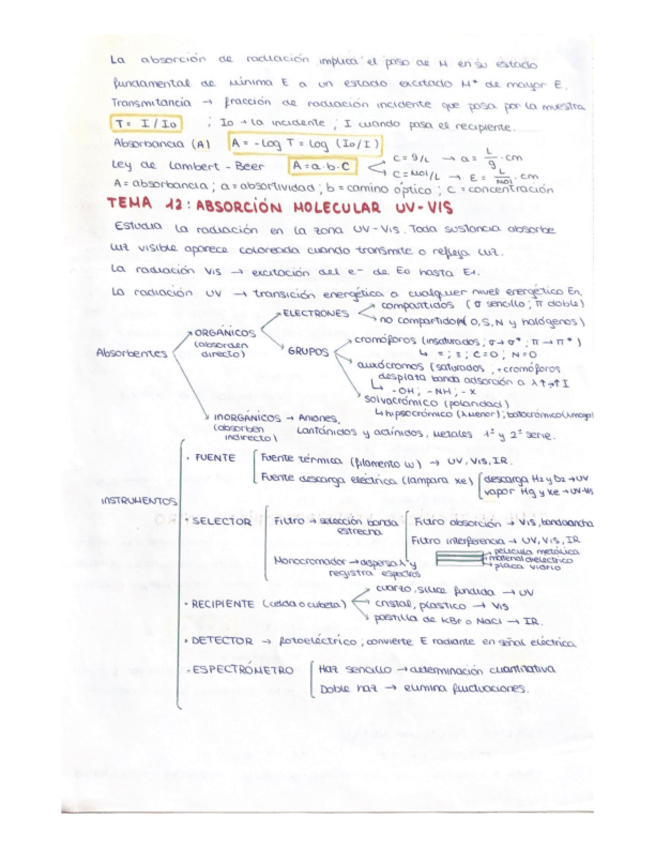 La absorción de radiación implica el paso de M en su estado
fundamental de mínima E a un estado excitado M* de mayor E.
Transmitancia → fracción de radiación incidente que pasa por la muestra
T = I/I0 ; I0 → la incidente ; I cuando pasa el recipiente.
Absorbancia (A) A = -Log T = Log (I0/I)
Ley de Lambert-Beer A = a·b·C
C = g/L → a = L/g · cm
C = mol/L → E = L/mol · cm
A = absorbancia ; a = absortividad ; b = camino óptico ; C = concentración
TEMA 12: ABSORCIÓN MOLECULAR UV-VIS
Estudia la radiación en la zona UV-Vis. Toda sustancia absorbe
luz visible aparece coloreada cuando transmite o refleja luz.
La radiación Vis → excitación del e- de E0 hasta E1.
La radiación UV → transición energética a cualquier nivel energético En
Absorbentes
ORGÁNICOS
(absorben
directo)
ELECTRONES
compartidos (σ sencillo ; π doble)
no compartidos (O, S, N y halógenos)
GRUPOS
cromóforos (insaturados ; σ→σ* ; π→π*)
↳ = ; ≡ ; C=O ; N=O
auxócromos (saturados, +cromóforos
desplaza banda adsorción a λ↑→↑I
↳ -OH ; -NH ; -X
solvacrómico (polaridad)
↳ hipsocrómico (λmenor) ; batocrómico (λmayor)
INORGÁNICOS → Aniones,
(absorben
indirecto)
Lantánidos y actínidos, metales 1ª y 2ª serie.
INSTRUMENTOS
· FUENTE
Fuente térmica (filamento W) → UV, Vis, IR.
Fuente descarga eléctrica (lampara Xe)
descarga H2 y D2 → UV
vapor Hg y Xe → UV-Vis
· SELECTOR
Filtro → selección banda
estrecha
Filtro absorción → Vis, banda ancha
Filtro interferencia → UV, Vis, IR
película metálica
material dieléctrico
placa vidrio
Monocromador → dispersa λ y
registra espectros
· RECIPIENTE (celda o cubeta)
cuarzo, sílice fundida → UV
cristal, plástico → Vis
pastilla de KBr o NaCl → IR.
· DETECTOR → fotoeléctrico ; convierte E radiante en señal eléctrica
· ESPECTRÓMETRO
Haz sencillo → determinación cuantitativa
Doble haz → elimina fluctuaciones.